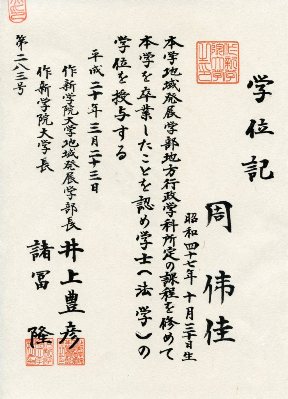 学位記
周伟佳
昭和四十七年十月三十日生
本学地域発展学部地方行政学科所定の課程を修めて
本学を卒業したことを認め学士（法学）の
学位を授与する
平成二十年三月二十三日
作新学院大学地域発展学部長 井上豊彦
作新学院大学長 諸冨隆
第二八三号